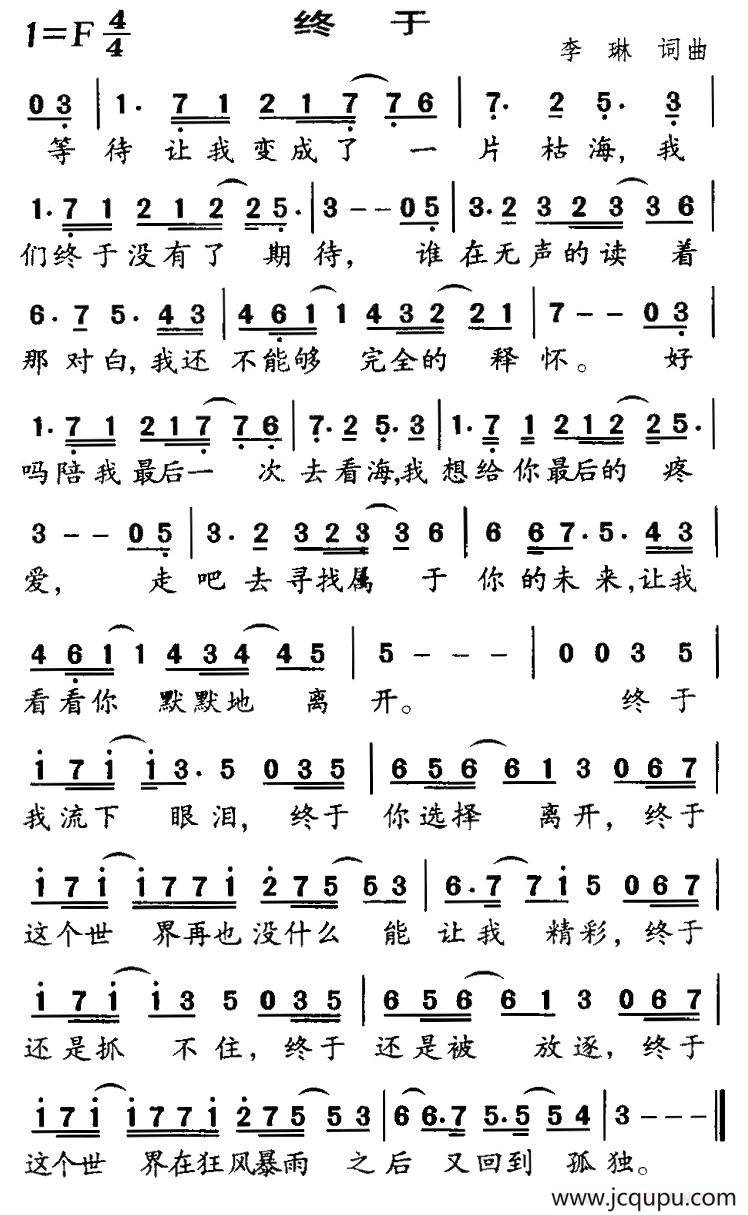 终 于
1=F 4/4
李 琳 词曲
0 3 | 1. 7 1 2 1 7 7 6 | 7. 2 5. 3 |
等 待 让 我 变 成 了 一 片 枯 海, 我
1. 7 1 2 1 2 2 5. | 3 - - 0 5 | 3. 2 3 2 3 3 6 |
们 终 于 没 有 了 期 待, 谁 在 无 声 的 读 着
6. 7 5. 4 3 | 4 6 1 1 4 3 2 2 1 | 7 - - 0 3 |
那 对 白, 我 还 不 能 够 完 全 的 释 怀。 好
1. 7 1 2 1 7 7 6 | 7. 2 5. 3 | 1. 7 1 2 1 2 2 5. |
吗 陪 我 最 后 一 次 去 看 海, 我 想 给 你 最 后 的 疼
3 - - 0 5 | 3. 2 3 2 3 3 6 | 6 6 7. 5. 4 3 |
爱, 走 吧 去 寻 找 属 于 你 的 未 来, 让 我
4 6 1 1 4 3 4 4 5 | 5 - - - | 0 0 3 5 |
看 看 你 默 默 地 离 开。 终 于
1 7 1 1 3. 5 0 3 5 | 6 5 6 6 1 3 0 6 7 |
我 流 下 眼 泪, 终 于 你 选 择 离 开, 终 于
1 7 1 1 7 7 1 2 7 5 5 3 | 6. 7 7 1 5 0 6 7 |
这 个 世 界 再 也 没 什 么 能 让 我 精 彩, 终 于
1 7 1 1 3 5 0 3 5 | 6 5 6 6 1 3 0 6 7 |
还 是 抓 不 住, 终 于 还 是 被 放 逐, 终 于
1 7 1 1 7 7 1 2 7 5 5 3 | 6 6. 7 5. 5 5 4 | 3 - - - ‖
这 个 世 界 在 狂 风 暴 雨 之 后 又 回 到 孤 独。
www.jcqupu.com